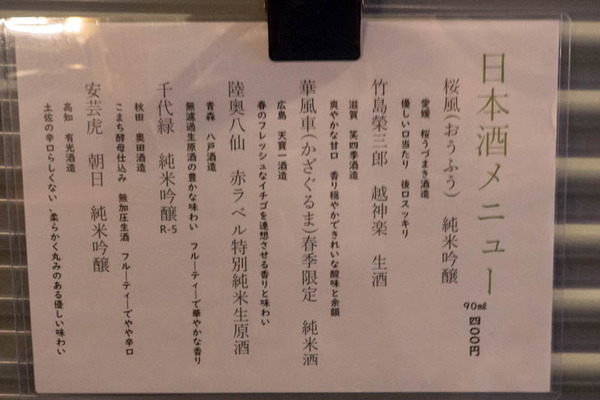 日本酒メニュー
90㎖ 四〇〇円
桜風(おうふう) 純米吟醸
愛媛 桜うづまき酒造
優しい口当たり 後口スッキリ
竹島榮三郎 越神楽 生酒
滋賀 笑四季酒造
爽やかな甘口 香り穏やかできれいな酸味と余韻
華風車(かざぐるま)春季限定 純米酒
広島 天寶一酒造
春のフレッシュなイチゴを連想させる香りと味わい
陸奥八仙 赤ラベル特別純米生原酒
青森 八戸酒造
無濾過生原酒の豊かな味わい フルーティーで華やかな香り
千代緑 純米吟醸R-5
秋田 奥田酒造
こまち酵母仕込み 無加圧生酒 フルーティーでやや辛口
安芸虎 朝日 純米吟醸
高知 有光酒造
土佐の辛口らしくない、柔らかく丸みのある優しい味わい